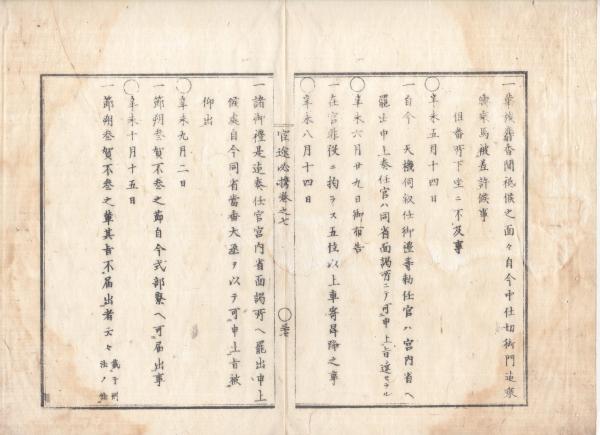 一 華族麝香間祗候之面々自今中仕切御門迄乗
輿乗馬被差許候事
但番所下坐ニ不及事
◯辛未五月十四日
一自今 天機伺叙任御禮等勅任官ハ宮内省ヘ
罷出申上奏任官ハ同省面謁所ニテ可申上旨
◯辛未六月廿九日御布告
一在官非役ニ拘ラス五位以上車寄昇降之事
◯辛未八月十四日
官途必携巻之七
一諸御禮是迄奏任官宮内省面謁所ヘ罷出申上
候處自今同省當番大丞ヲ以テ可申上旨被
仰出
◯辛未九月二日
一節朔参賀不参之節自今式部寮ヘ可届出事
◯辛未十月十五日
一節朔参賀不参之輩其旨不届出者云々